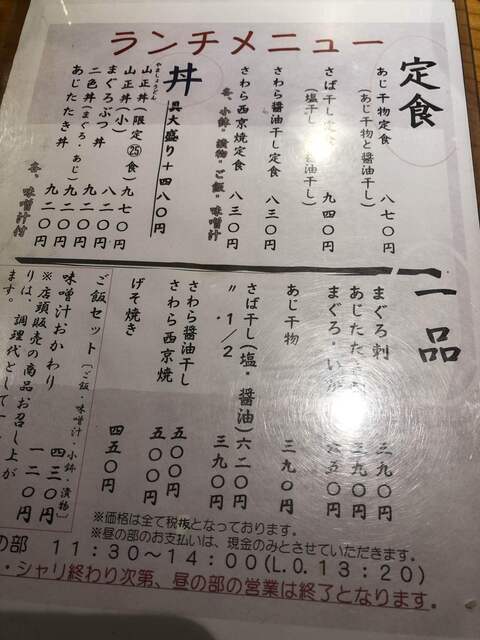 ランチメニュー
定食
あじ干物定食 八七〇円
(あじ干物と醤油干し)
さば干し定食 九四〇円
(塩干し 醤油干し)
さわら醤油干し定食 八三〇円
さわら西京焼定食 八三〇円
壺、小鉢・漬物・ご飯・味噌汁
丼 具大盛り+四八〇円
やましょうどん
山正丼(限定㉕食) 九七〇円
山正丼(小) 八二〇円
まぐろぶつ丼 九二〇円
二色丼(まぐろ・あじ) 九二〇円
あじたたき丼 九二〇円
壺・味噌汁付
一品
まぐろ刺 三九〇円
あじたた 三九〇円
まぐろ・いか 六五〇円
あじ干物 三九〇円
さば干し(塩・醤油) 六二〇円
〃 1/2 三九〇円
さわら醤油干し 五〇〇円
さわら西京焼 五〇〇円
げそ焼き 四五〇円
ご飯セット
〔ご飯・味噌汁・小鉢・漬物〕 四三〇円
味噌汁おかわり 一二〇円
※店頭販売の商品お召し上が
りは、調理代として
ます。
※価格は全て税抜となっております。
※昼の部のお支払いは、現金のみとさせていただきます。
の部 11:30～14:00(L.O.13:20)
・シャリ終わり次第、昼の部の営業は終了となります。